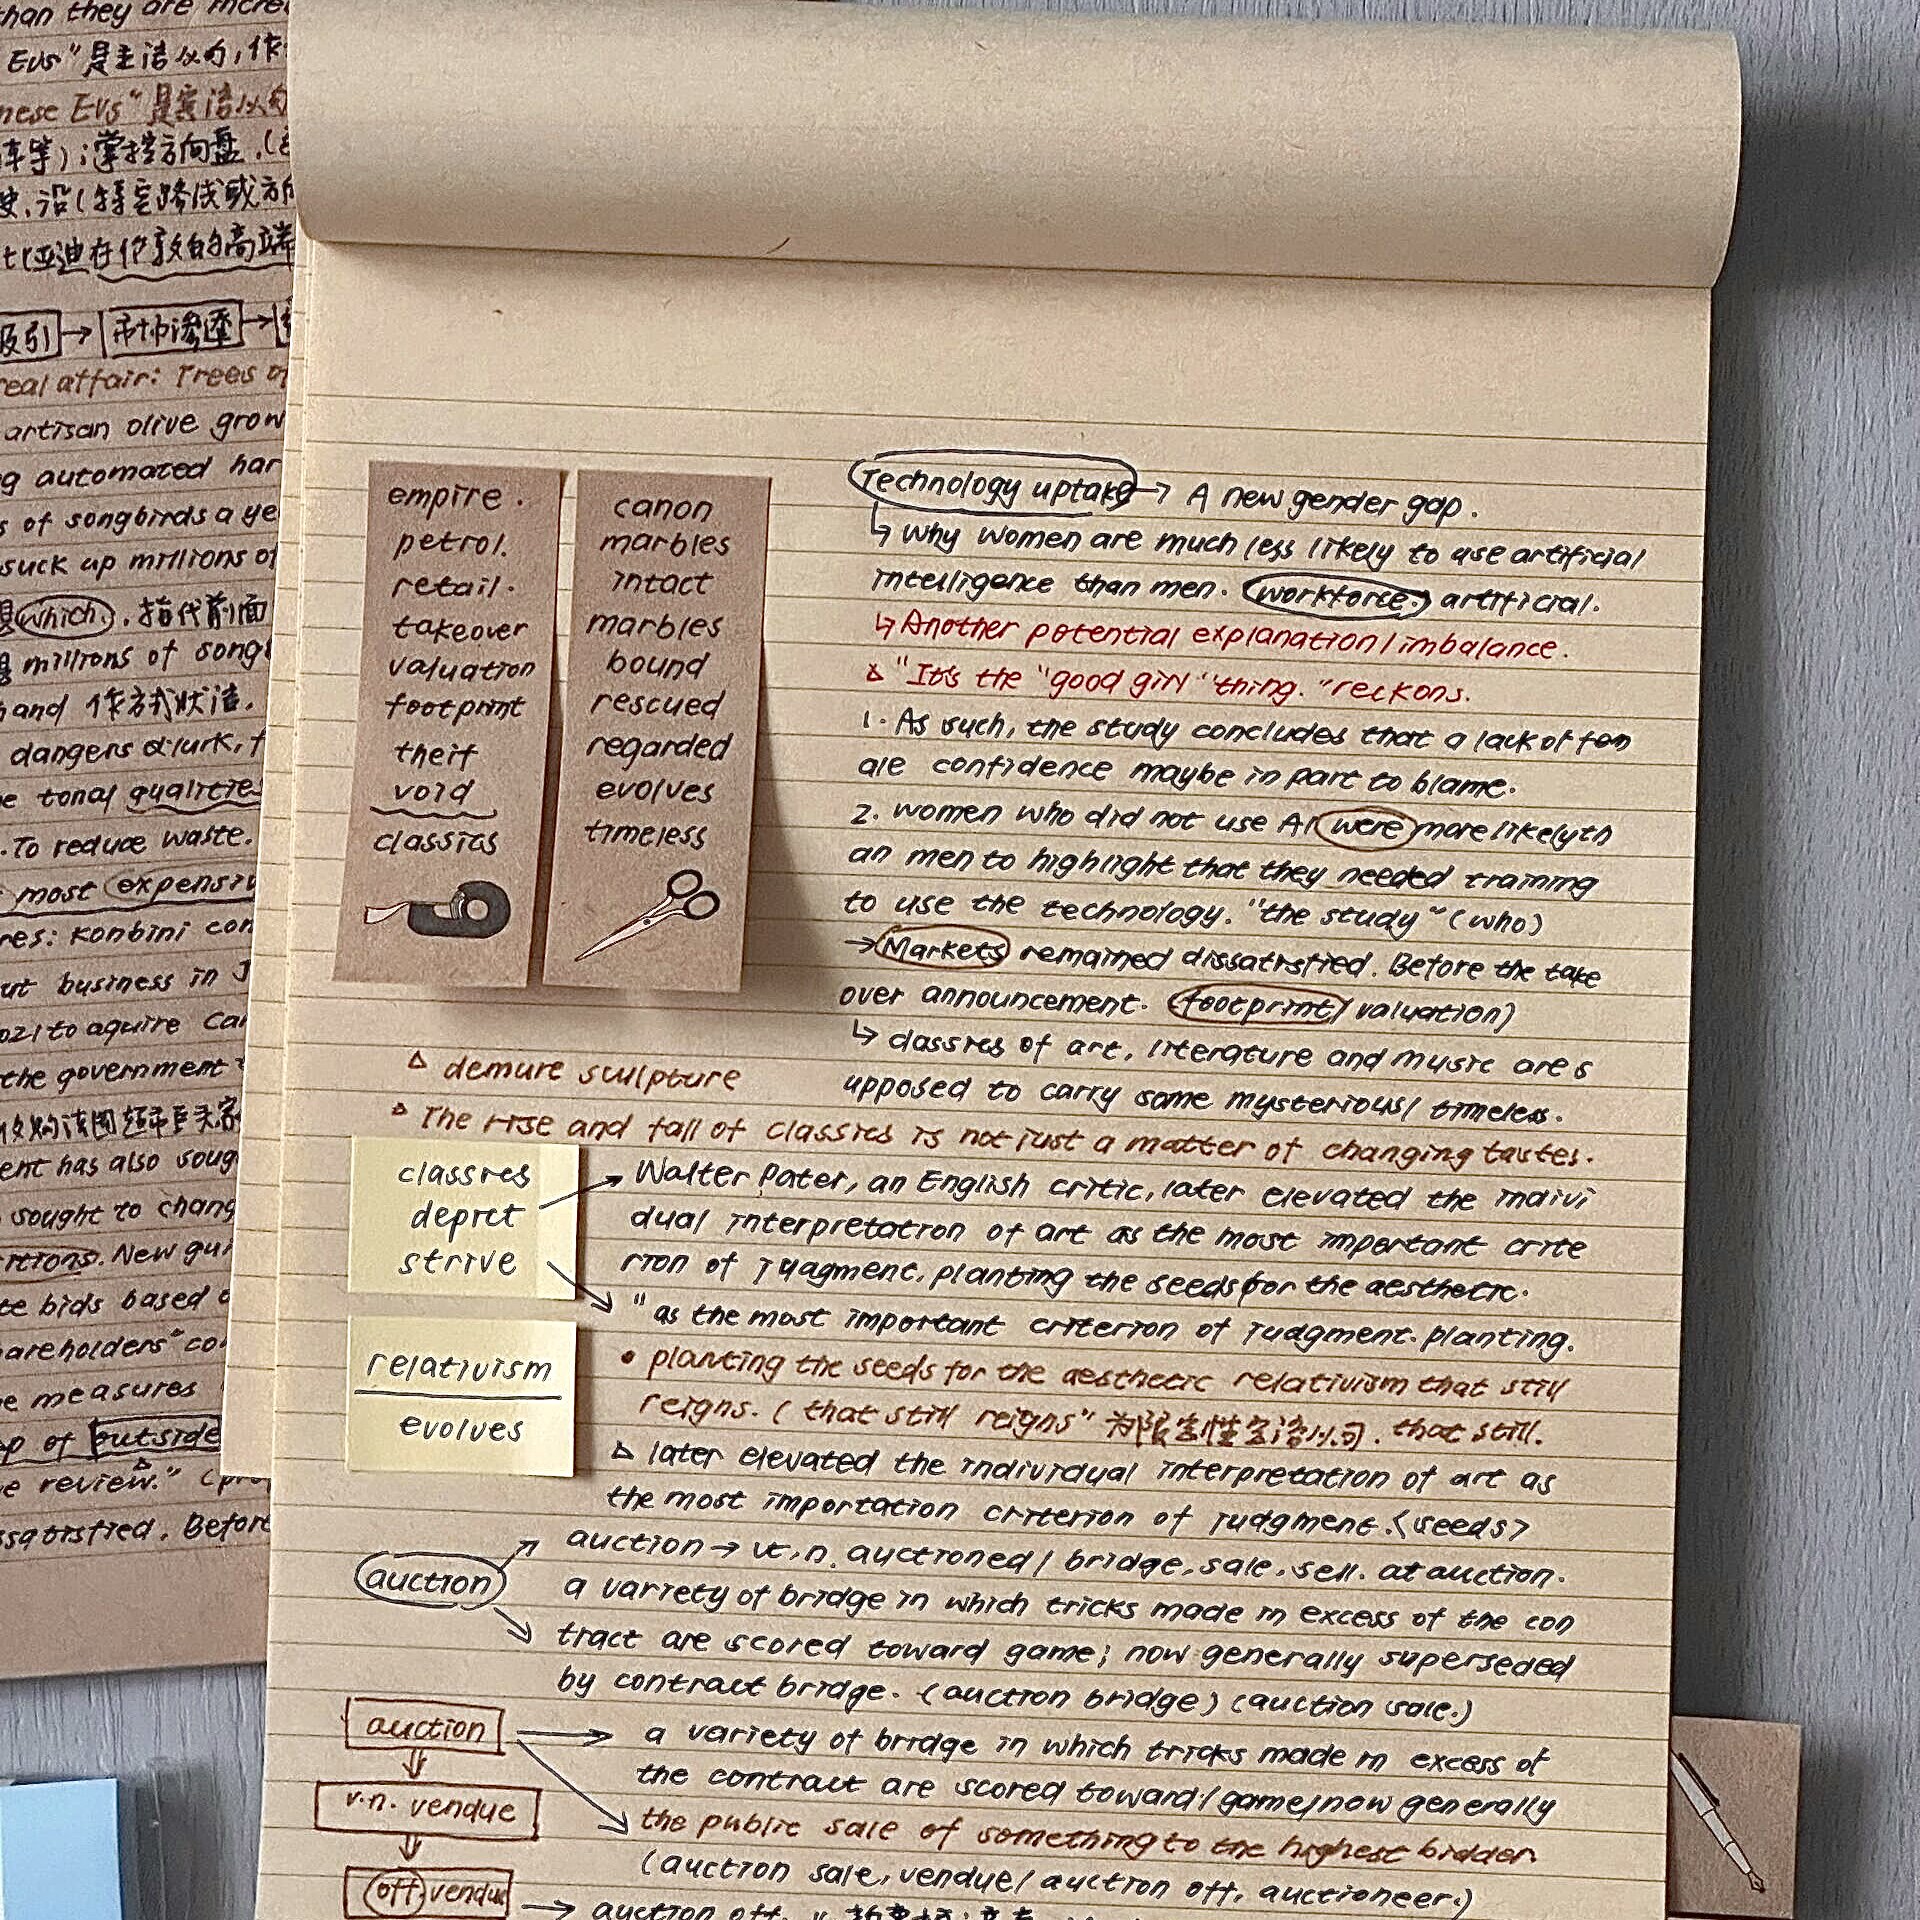 than they are
EVs"是主语从句,作
nese EVs"是宾语从句
车等);掌控方向盘.(
沿(特定路线或方向
比亚迪在伦敦的高端
吸引→市场渗透→
real affair: Trees of
artisan olive grow
g automated har
s of songbirds a ye
suck up millions of
which.指代前面
millions of song
hand 作方式状语.
dangers & lurk, f
e tonal qualities
.To reduce waste.
most expensiv
res: Konbini con
ut business in J
021 to aquire Car
the government
收购法国超市巨头家
ent has also soug
sought to chang
itions. New gui
te bids based o
hareholders" co
e measures
p of outside
e review." (pro
ssatisfied. Before
empire.
petrol.
retail.
takeover
valuation
footprint
theif
void
classics
canon
marbles
intact
marbles
bound
rescued
regarded
evolves
timeless
Technology uptake → A new gender gap.
↳ why women are much less likely to use artificial
intelligence than men. workforce. artificial.
↳ Another potential explanation/imbalance.
△ "It's the "good girl" thing. "reckons.
1. As such, the study concludes that a lack of fem
ale confidence maybe in part to blame.
2. women who did not use AI were more likely th
an men to highlight that they needed training
to use the technology. "the study" (who)
→ Markets remained dissatisfied. Before the take
over announcement. (footprint/valuation)
↳ classics of art, literature and music are s
upposed to carry some mysterious/timeless.
△ demure sculpture
△ The rise and fall of classics is not just a matter of changing tastes.
classics
depict
strive
Walter Pater, an English critic, later elevated the indivi
dual interpretation of art as the most important crite
rion of judgment, planting the seeds for the aesthetic.
"as the most important criterion of judgment.planting.
relativism
evolves
• planting the seeds for the aesthetic relativism that still
reigns. (that still reigns" 为限定性定语从句. that still.
△ later elevated the individual interpretation of art as
the most importation criterion of judgment.<seeds>
auction
auction → vt, n. auctioned/bridge, sale, sell. at auction.
a variety of bridge in which tricks made in excess of the con
tract are scored toward game; now generally superseded
by contract bridge. (auction bridge) (auction sale.)
auction
a variety of bridge in which tricks made in excess of
the contract are scored toward/game/now generally
v.n. vendue
the public sale of something to the highest bidder
(auction sale, vendue/auction off, auctioneer.)
off vendue → auction off. v.